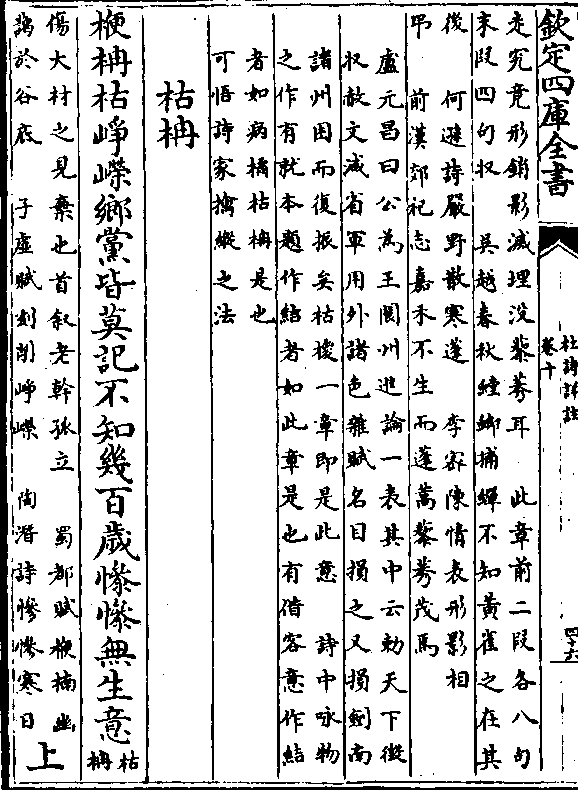 欽定四庫全書
杜詩詳註
卷十
四六
走究竟形銷影滅埋没藜莠耳　此章前二段各八句
末段四句收　吳越春秋螳螂捕蟬不知黄雀之在其
後　何遜詩嚴野散寒蓬　李密陳情表形影相
弔　前漢郊祀志嘉禾不生而蓬蒿藜莠茂焉
盧元昌曰公為王閬州進論一表其中云勅天下徵
收赦文減省軍用外諸色雜賦名目損之又損劍南
諸州困而復振矣枯椶一章即是此意　詩中咏物
之作有就本題作結者如此章是也有借客意作結
者如病橘枯柟是也
可悟詩家擒縱之法
枯柟
楩柟枯崢嶸鄉黨皆莫記不知幾百歲慘慘無生意
枯
柟
傷大材之見棄也首叙老幹孤立　蜀都賦楩楠幽
藹於谷底　子虛賦刻削崢嶸　陶潛詩慘慘寒日
上